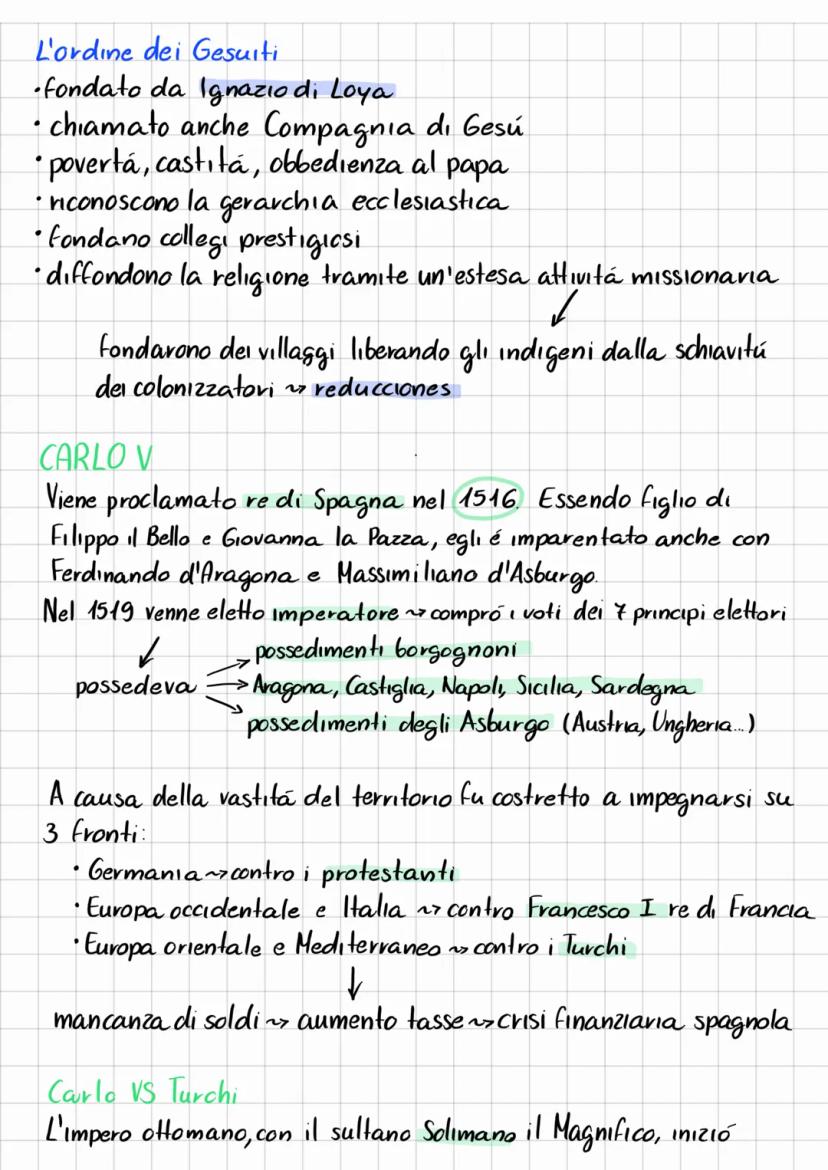 L'ordine dei Gesuiti
•fondato da Ignazio di Loya
• chiamato anche Compagnia di Gesú
• povertá, castitá, obbedienza al papa
• riconoscono la gerarchia ecclesiastica
• fondano collegi prestigiosi
• diffondono la religione tramite un'estesa attivitá missionaria
↙
fondarono dei villaggi liberando gli indigeni dalla schiavitú
dei colonizzatori ↝ reducciones
CARLO V
Viene proclamato re di Spagna nel 1516. Essendo figlio di
Filippo il Bello e Giovanna la Pazza, egli é imparentato anche con
Ferdinando d'Aragona e Massimiliano d'Asburgo.
Nel 1519 venne eletto imperatore ↝ compró i voti dei 7 principi elettori
↙
possedeva
→ possedimenti borgognoni
→ Aragona, Castiglia, Napoli, Sicilia, Sardegna
→ possedimenti degli Asburgo (Austria, Ungheria...)
A causa della vastitá del territorio fu costretto a impegnarsi su
3 fronti:
• Germania ↝ contro i protestanti
• Europa occidentale e Italia ↝ contro Francesco I re di Francia
• Europa orientale e Mediterraneo ↝ contro i Turchi
↓
mancanza di soldi ↝ aumento tasse ↝ crisi finanziaria spagnola
Carlo VS Turchi
L'impero ottomano, con il sultano Solimano il Magnifico, inizió